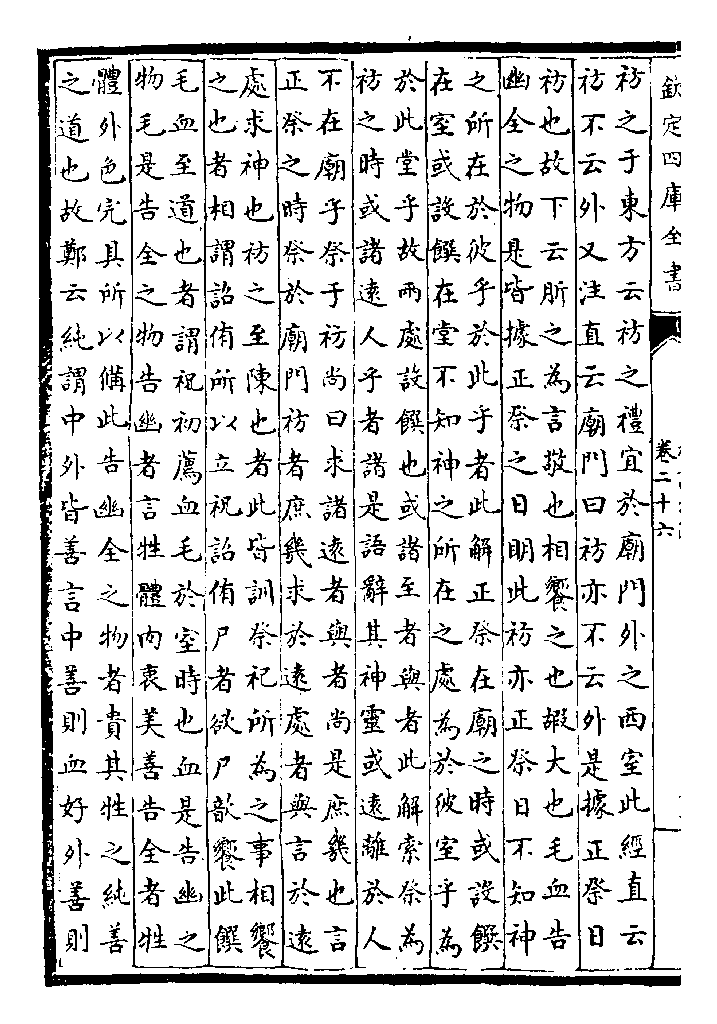 欽定四庫全書
卷二十六
祊之于東方云祊之禮宜於廟門外之西室此經直云
祊不云外又注直云廟門曰祊亦不云外是據正祭日
祊也故下云肵之為言敬也相饗之也嘏大也毛血告
幽全之物是皆據正祭之日明此祊亦正祭日不知神
之所在於彼乎於此乎者此解正祭在廟之時或設饌
在室或設饌在堂不知神之所在之處為於彼室乎為
於此堂乎故兩處設饌也或諸至者與者此解索祭為
祊之時或諸遠人乎者諸是語辭其神靈或遠離於人
不在廟乎祭于祊尚曰求諸遠者與者尚是庶幾也言
正祭之時祭於廟門祊者庶幾求於遠處者與言於遠
處求神也祊之至陳也者此皆訓祭祀所為之事相饗
之也者相謂詔侑所以立祝詔侑尸者欲尸歆饗此饌
毛血至道也者謂祝初薦血毛於室時也血是告幽之
物毛是告全之物告幽者言牲體肉裏美善告全者牲
體外色完具所以備此告幽全之物者貴其牲之純善
之道也故鄭云純謂中外皆善言中善則血好外善則